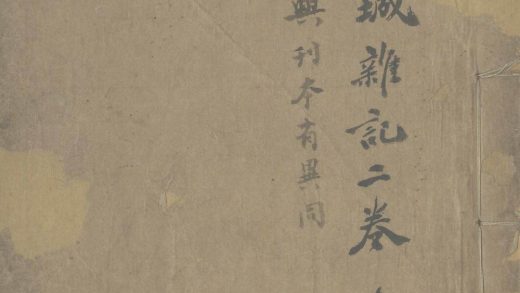 城雜記二卷
與刊本有異同